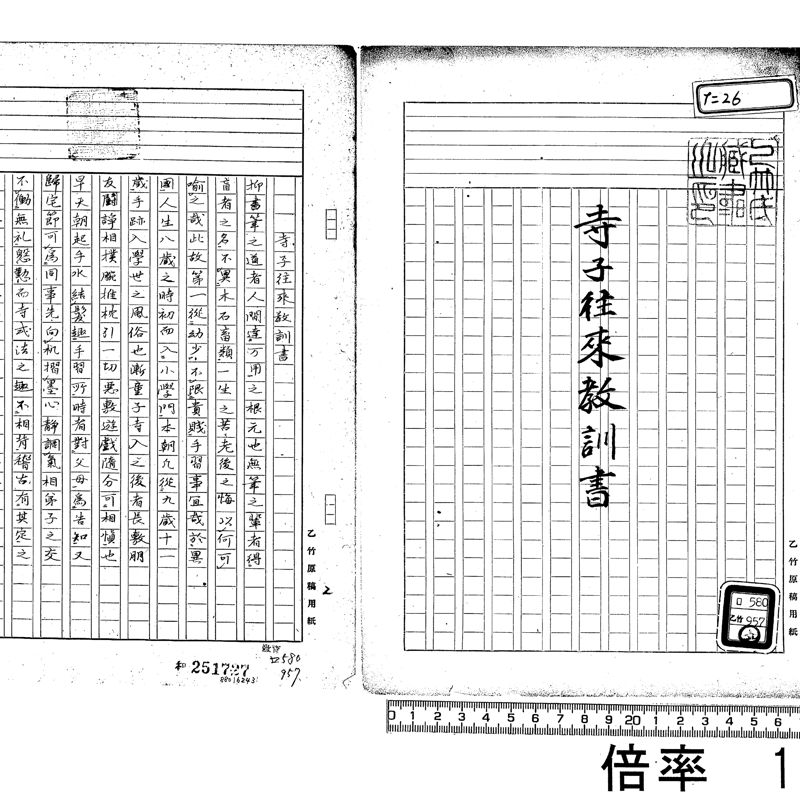 ケ=26
寺子往來教訓書
乙竹原稿用紙
ロ 580
乙竹 957
寺子往來教訓書
抑書筆之道者人間達万用之根元也無筆之輩者得
盲者之名不異木石畜類一生之苦老後之悔以何可
喻之哉此故第一從幼少不限貴賤手習事宜哉於異
國人生八歲之時初而入小學門本朝九從九歲十一
歲手跡入學世之風俗也漸童子寺入之後者長敷朋
友鬪諍相撲腕推枕引一切悪敷遊戲隨分可相慎也
早天朝起手水結髮趣手習所時者對父母為告知又
歸宅節可為同事先向机摺墨心靜調氣相弟子之交
不働無礼慇懃而寺或法之趣不相背稽古有其定之
乙竹原稿用紙
2
和 251727
88016243
ロ580
957
0 1 2 3 4 5 6 7 8 9 20 1 2 3 4 5 6
倍率 1